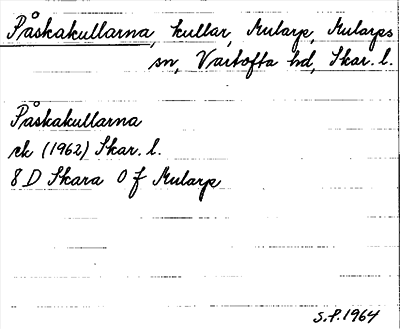 Påskakullarna, kullar, Mularp, Mularps
sn, Vartofta hd, Skar. l.
Påskakullarna
ek (1962) Skar. l.
8 D Skara 0 f Mularp
S.P. 1964